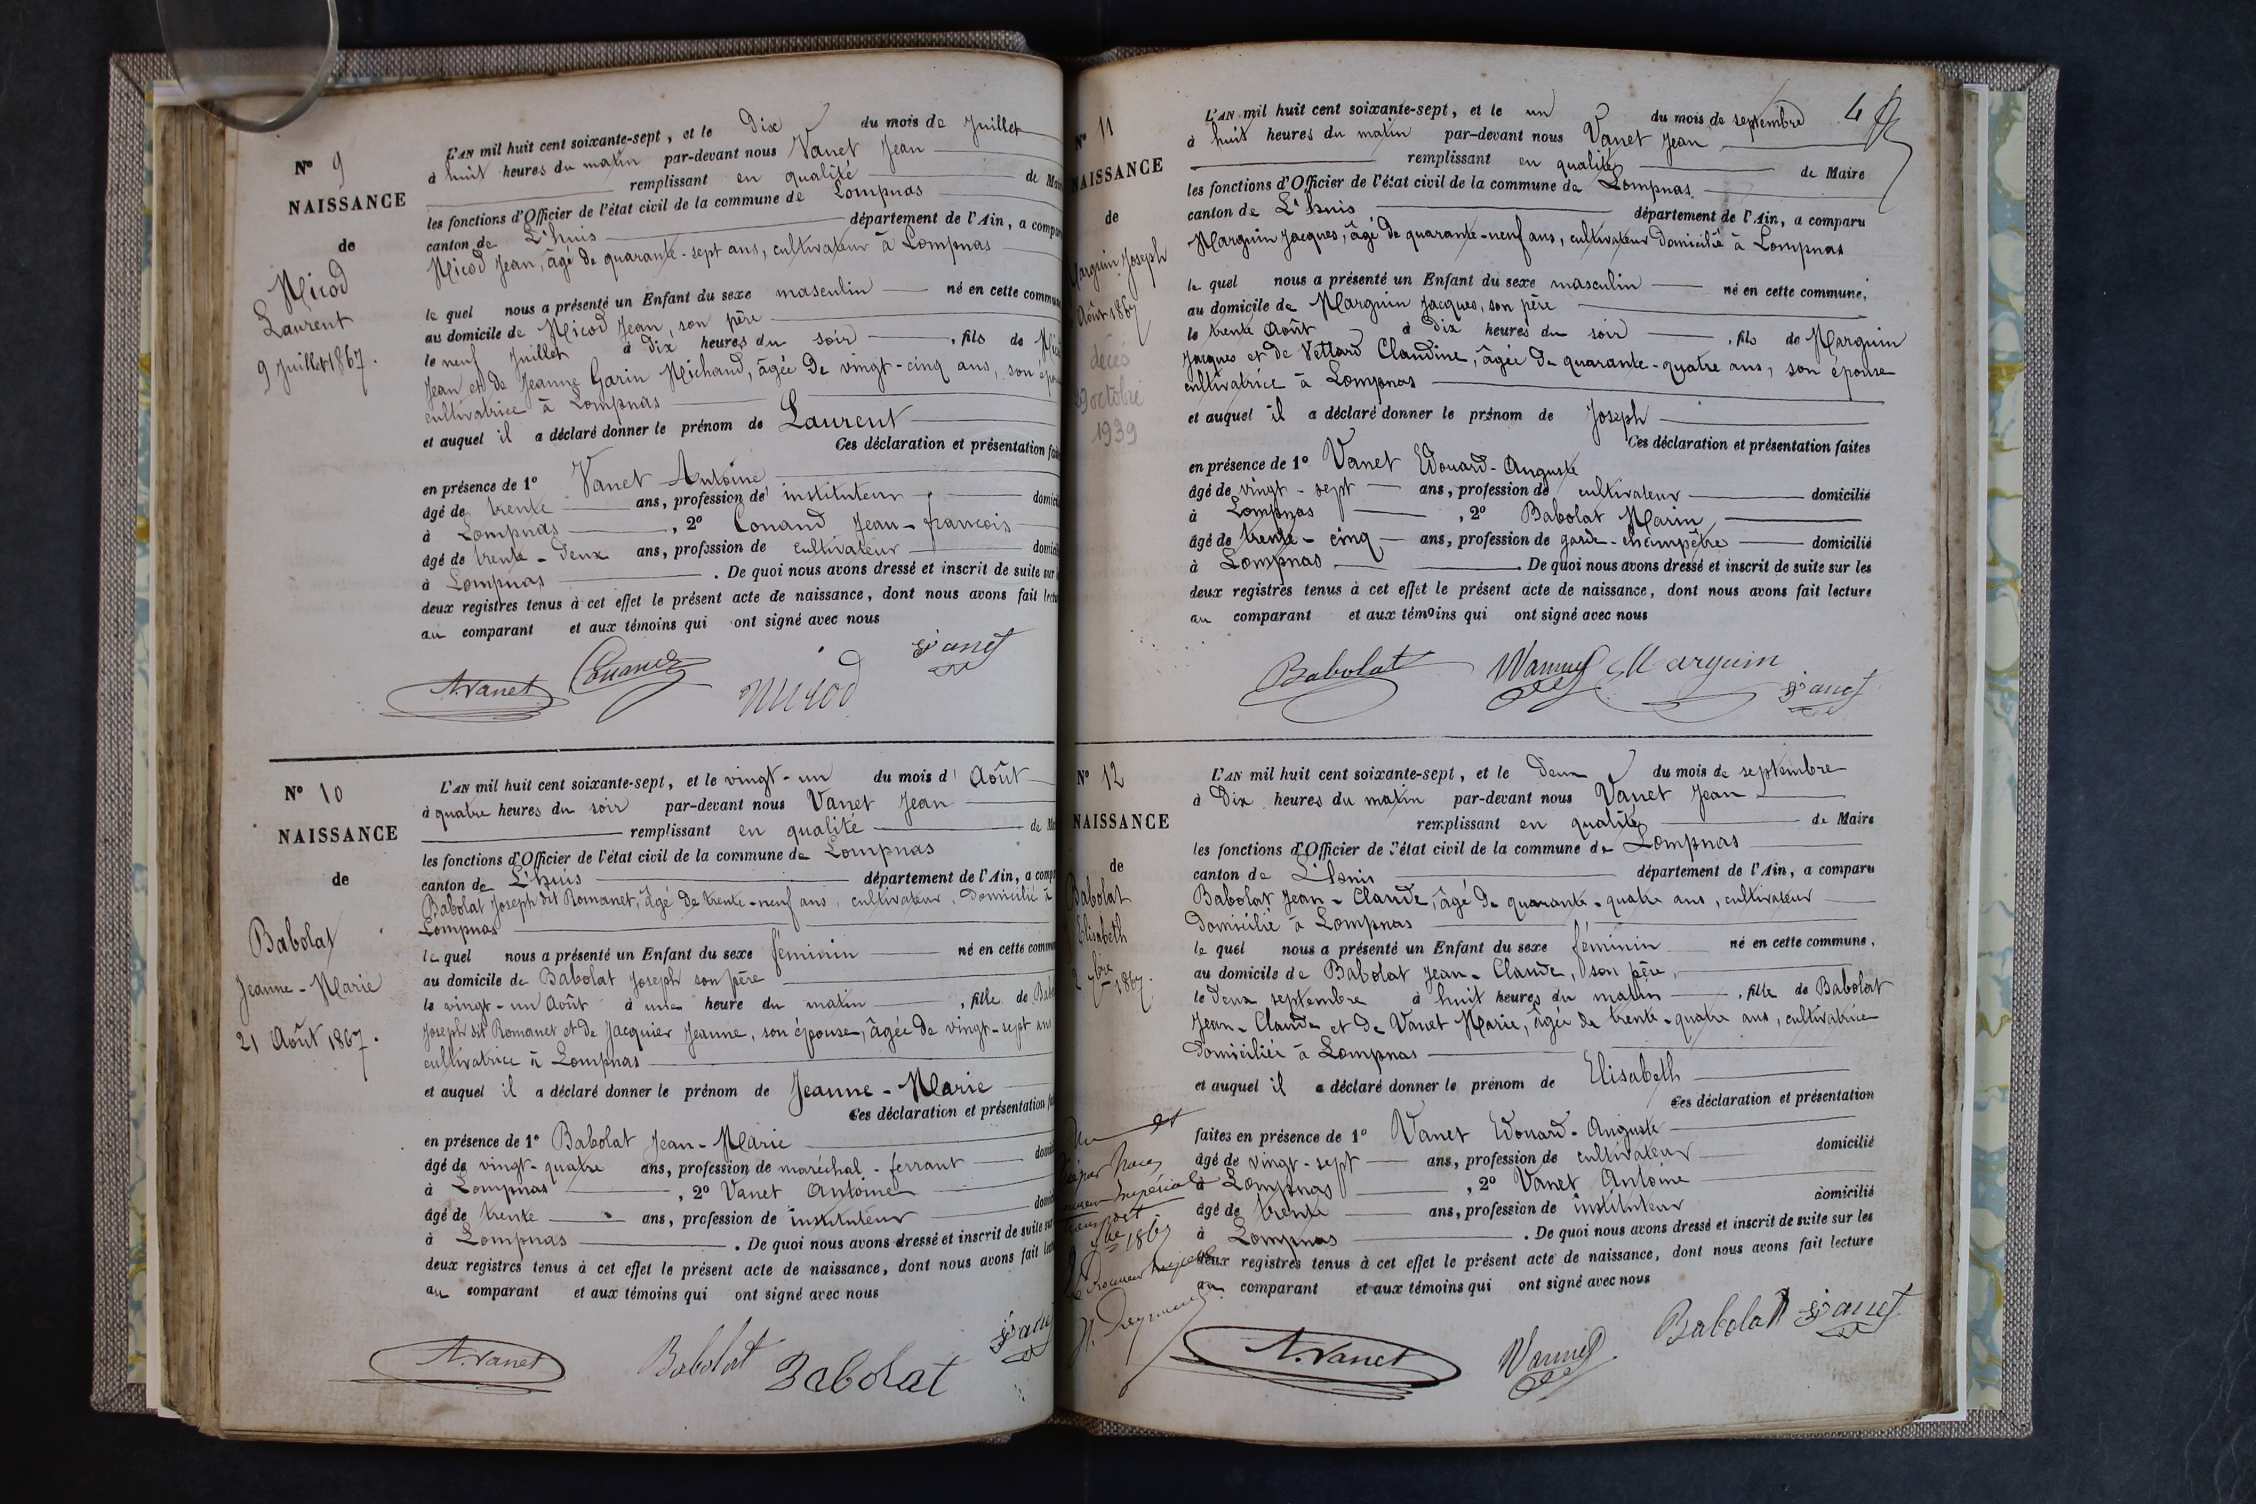 N° 9
NAISSANCE
de
Nicod
Laurent
9 Juillet 1867.
L'AN mil huit cent soixante-sept, et le Dix du mois de Juillet
à huit heures du matin par-devant nous Vanet Jean
remplissant en qualité de
les fonctions d'Officier de l'état civil de la commune de Lompnas
canton de L'huis département de l'Ain, a
Nicod Jean, âgé de quarante-sept ans, cultivateur à Lompnas
le quel nous a présenté un Enfant du sexe masculin né en cette
au domicile de Nicod Jean, son père
le neuf Juillet à dix heures du soir, fils de
Jean et de Jeanne Garin Michaud, âgée de vingt-cinq ans, son
cultivatrice à Lompnas
et auquel il a déclaré donner le prénom de Laurent
Ces déclaration et présentation
en présence de 1° Vanet Antoine
âgé de trente ans, profession de instituteur
à Lompnas, 2° Conand Jean-françois
âgé de trente-deux ans, profession de cultivateur
à Lompnas. De quoi nous avons dressé et inscrit de suite sur
deux registres tenus à cet effet le présent acte de naissance, dont nous avons fait
au comparant et aux témoins qui ont signé avec nous
A. Vanet Conand Nicod Vanet
N° 10
NAISSANCE
de
Babolat
Jeanne-Marie
21 Août 1867.
L'AN mil huit cent soixante-sept, et le vingt-un du mois d' Août
à quatre heures du soir par-devant nous Vanet Jean
remplissant en qualité de
les fonctions d'Officier de l'état civil de la commune de Lompnas
canton de L'huis département de l'Ain, a
Babolat Joseph dit Romanet, âgé de trente-neuf ans, cultivateur, Domicilié à
Lompnas
le quel nous a présenté un Enfant du sexe féminin né en cette
au domicile de Babolat Joseph son père
le vingt-un Août à une heure du matin, fille de
Joseph dit Romanet et de Jacquier Jeanne, son épouse, âgée de vingt-sept ans
cultivatrice à Lompnas
et auquel il a déclaré donner le prénom de Jeanne-Marie
Ces déclaration et présentation
en présence de 1° Babolat Jean-Marie
âgé de vingt-quatre ans, profession de maréchal-ferrant
à Lompnas, 2° Vanet Antoine
âgé de trente ans, profession de instituteur
à Lompnas. De quoi nous avons dressé et inscrit de suite sur
deux registres tenus à cet effet le présent acte de naissance, dont nous avons fait
au comparant et aux témoins qui ont signé avec nous
A. Vanet Babolat Babolat Vanet
4
N° 11
NAISSANCE
de
Marguin Joseph
Août 1867
décés
29 octobre
1939
L'AN mil huit cent soixante-sept, et le un du mois de septembre
à huit heures du matin par-devant nous Vanet Jean
remplissant en qualité de Maire
les fonctions d'Officier de l'état civil de la commune de Lompnas
canton de L'huis département de l'Ain, a comparu
Marguin Jacques, âgé de quarante-neuf ans, cultivateur Domicilié à Lompnas
le quel nous a présenté un Enfant du sexe masculin né en cette commune,
au domicile de Marguin Jacques, son père
le trente Août à Dix heures du soir, fils de Marguin
Jacques et de Vettard Claudine, âgée de quarante-quatre ans, son épouse
cultivatrice à Lompnas
et auquel il a déclaré donner le prénom de Joseph
Ces déclaration et présentation faites
en présence de 1° Vanet Edouard-Auguste
âgé de vingt-sept ans, profession de cultivateur domicilié
à Lompnas, 2° Babolat Marin
âgé de trente-cinq ans, profession de garde-champêtre domicilié
à Lompnas. De quoi nous avons dressé et inscrit de suite sur les
deux registres tenus à cet effet le présent acte de naissance, dont nous avons fait lecture
au comparant et aux témoins qui ont signé avec nous
Babolat Vannet Marguin Vanet
N° 12
NAISSANCE
de
Babolat
Elisabeth
2 7bre 1867.
L'AN mil huit cent soixante-sept, et le Deux du mois de septembre
à Dix heures du matin par-devant nous Vanet Jean
remplissant en qualité de Maire
les fonctions d'Officier de l'état civil de la commune de Lompnas
canton de L'huis département de l'Ain, a comparu
Babolat Jean-Claude, âgé de quarante-quatre ans, cultivateur
Domicilié à Lompnas
le quel nous a présenté un Enfant du sexe féminin né en cette commune,
au domicile de Babolat Jean-Claude, son père,
le Deux septembre à huit heures du matin, fille de Babolat
Jean-Claude et de Vanet Marie, âgée de trente-quatre ans, cultivatrice
Domiciliée à Lompnas
et auquel il a déclaré donner le prénom de Elisabeth
Ces déclaration et présentation
faites en présence de 1° Vanet Edouard-Auguste
âgé de vingt-sept ans, profession de cultivateur domicilié
à Lompnas, 2° Vanet Antoine
âgé de trente ans, profession de instituteur domicilié
à Lompnas. De quoi nous avons dressé et inscrit de suite sur les
deux registres tenus à cet effet le présent acte de naissance, dont nous avons fait lecture
au comparant et aux témoins qui ont signé avec nous
Vu et
par Nous
Impérial
1867
A. Vanet Vannet Babolat Vanet